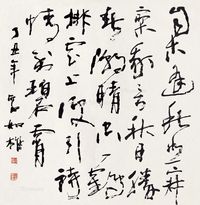 自古逢秋悲寂
寥我言秋日勝
春朝晴空一鶴
排雲上便引詩
情到碧霄
丁丑年